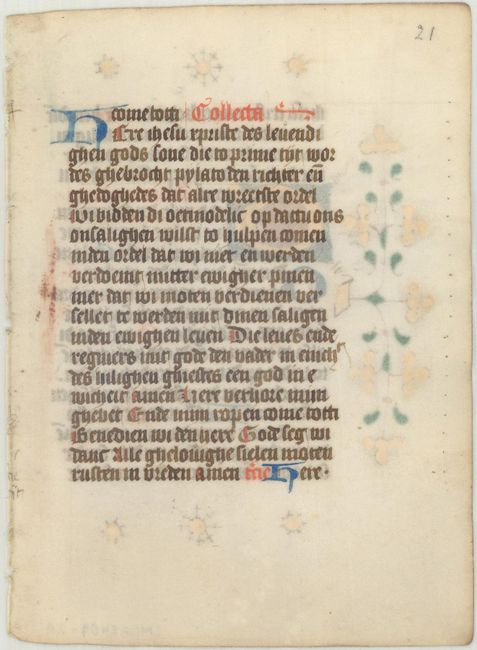 21
come totti Collecta
Here ihesu xpriste des leuendi
ghen gods sone die to prime tijt wor
des ghebrocht pylato den richter en̄
ghedoghedes dat alre wreetste ordel
wi bidden di oetmodelic op dattu ons
onsalighen wilst to hulpen comen
inden ordel dat wi niet en werden
verdoemt mitter ewigher pinen
mer dat wi moten verdienen ver
sellet te werden mit dinen saligen
inden ewighen leuen Die leues ende
regniers mit gode den vader in enich
des hilighen gheestes een god in e
wicheit amen Here verhore mijn
ghebet Ende mijn ropen come totti
Benedien wi den here Gode seg wi
danc Alle ghelouighe sielen moten
rusten in vreden amen Here